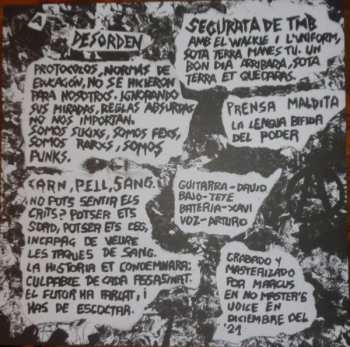 DESORDEN
PROTOCOLOS, NORMAS DE
EDUCACIÓN, NO SE HICIERON
PARA NOSOTROS. IGNORANDO
SUS MIRADAS, REGLAS ABSURTAS
NO NOS IMPORTAN.
SOMOS SUCIXS, SOMOS FEXS,
SOMOS RARXS, SOMOS
PUNKS.
CARN, PELL, SANG.
NO POTS SENTIR ELS
CRITS? POTSER ETS
SORD, POTSER ETS CEG,
INCAPAÇ DE VEURE
LES TAQUES DE SANG.
LA HISTORIA ET CONDEMNARA:
CULPABLE DE CADA ASSASINAT.
EL FUTOR HA PARLAT, I
HAS DE ESCOLTAR.
SEGURATA DE TMB
AMB EL WALKIE I L'UNIFORM,
SOTA TERRA MANES TU. UN
BON DIA ARRIBARA, SOTA
TERRA ET QUEDARAS.
PRENSA MALDITA
LA LENGUA BIFIDA
DEL PODER
GUITARRA-DAVID
BAJO-TETE
BATERIA-XAVI
VOZ-ARTURO
GRABADO Y
MASTERIZADO
POR MARCUS
EN NO MASTER'S
VOICE EN
DICIEMBRE DEL
'21